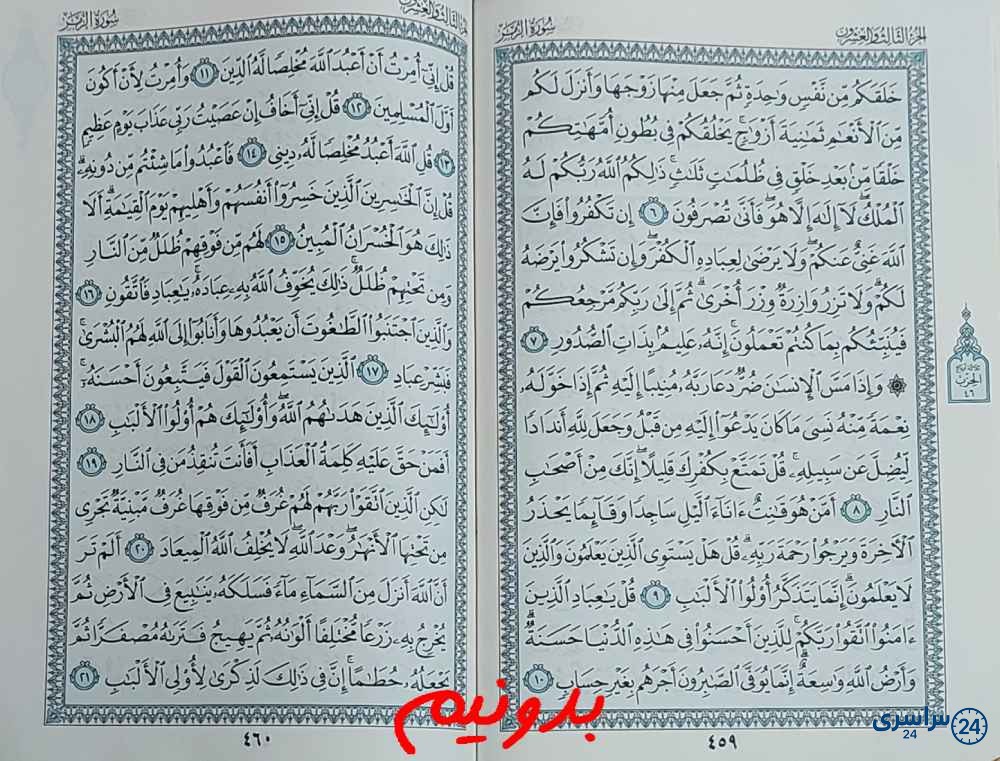 الجزء الثالث والعشرون
سورة الزمر
خَلَقَكُم مِّن نَّفْسٍ وَاحِدَةٍ ثُمَّ جَعَلَ مِنْهَا زَوْجَهَا وَأَنزَلَ لَكُم
مِّنَ الْأَنْعَامِ ثَمَانِيَةَ أَزْوَاجٍ يَخْلُقُكُمْ فِي بُطُونِ أُمَّهَاتِكُمْ
خَلْقًا مِّن بَعْدِ خَلْقٍ فِي ظُلُمَاتٍ ثَلَاثٍ ذَالِكُمُ اللَّهُ رَبُّكُمْ لَهُ
الْمُلْكُ لَا إِلَٰهَ إِلَّا هُوَ فَأَنَّىٰ تُصْرَفُونَ ٦ إِن تَكْفُرُوا فَإِنَّ
اللَّهَ غَنِيٌّ عَنكُمْ وَلَا يَرْضَىٰ لِعِبَادِهِ الْكُفْرَ وَإِن تَشْكُرُوا يَرْضَهُ
لَكُمْ وَلَا تَزِرُ وَازِرَةٌ وِزْرَ أُخْرَىٰ ثُمَّ إِلَىٰ رَبِّكُم مَّرْجِعُكُمْ
فَيُنَبِّئُكُم بِمَا كُنتُمْ تَعْمَلُونَ إِنَّهُ عَلِيمٌ بِذَاتِ الصُّدُورِ ٧
۞ وَإِذَا مَسَّ الْإِنسَانَ ضُرٌّ دَعَا رَبَّهُ مُنِيبًا إِلَيْهِ ثُمَّ إِذَا خَوَّلَهُ
نِعْمَةً مِّنْهُ نَسِيَ مَا كَانَ يَدْعُوا إِلَيْهِ مِن قَبْلُ وَجَعَلَ لِلَّهِ أَندَادًا
لِّيُضِلَّ عَن سَبِيلِهِ قُلْ تَمَتَّعْ بِكُفْرِكَ قَلِيلًا إِنَّكَ مِنْ أَصْحَابِ
النَّارِ ٨ أَمَّنْ هُوَ قَانِتٌ ءَانَاءَ اللَّيْلِ سَاجِدًا وَقَائِمًا يَحْذَرُ
الْآخِرَةَ وَيَرْجُوا رَحْمَةَ رَبِّهِ قُلْ هَلْ يَسْتَوِي الَّذِينَ يَعْلَمُونَ وَالَّذِينَ
لَا يَعْلَمُونَ إِنَّمَا يَتَذَكَّرُ أُولُوا الْأَلْبَابِ ٩ قُلْ يَاعِبَادِ الَّذِينَ
ءَامَنُوا اتَّقُوا رَبَّكُمْ لِلَّذِينَ أَحْسَنُوا فِي هَٰذِهِ الدُّنْيَا حَسَنَةٌ
وَأَرْضُ اللَّهِ وَاسِعَةٌ إِنَّمَا يُوَفَّى الصَّابِرُونَ أَجْرَهُم بِغَيْرِ حِسَابٍ ١٠
٤٥٩
الحزب
٤٦
الجزء الثالث والعشرون
سورة الزمر
قُلْ إِنِّي أُمِرْتُ أَنْ أَعْبُدَ اللَّهَ مُخْلِصًا لَّهُ الدِّينَ ١١ وَأُمِرْتُ لِأَنْ أَكُونَ
أَوَّلَ الْمُسْلِمِينَ ١٢ قُلْ إِنِّي أَخَافُ إِنْ عَصَيْتُ رَبِّي عَذَابَ يَوْمٍ عَظِيمٍ
١٣ قُلِ اللَّهَ أَعْبُدُ مُخْلِصًا لَّهُ دِينِي ١٤ فَاعْبُدُوا مَا شِئْتُم مِّن دُونِهِ
قُلْ إِنَّ الْخَاسِرِينَ الَّذِينَ خَسِرُوا أَنفُسَهُمْ وَأَهْلِيهِمْ يَوْمَ الْقِيَامَةِ أَلَا
ذَالِكَ هُوَ الْخُسْرَانُ الْمُبِينُ ١٥ لَهُم مِّن فَوْقِهِمْ ظُلَلٌ مِّنَ النَّارِ
وَمِن تَحْتِهِمْ ظُلَلٌ ذَالِكَ يُخَوِّفُ اللَّهُ بِهِ عِبَادَهُ يَاعِبَادِ فَاتَّقُونِ ١٦
وَالَّذِينَ اجْتَنَبُوا الطَّاغُوتَ أَن يَعْبُدُوهَا وَأَنَابُوا إِلَى اللَّهِ لَهُمُ الْبُشْرَىٰ
فَبَشِّرْ عِبَادِ ١٧ الَّذِينَ يَسْتَمِعُونَ الْقَوْلَ فَيَتَّبِعُونَ أَحْسَنَهُ
أُولَٰئِكَ الَّذِينَ هَدَاهُمُ اللَّهُ وَأُولَٰئِكَ هُمْ أُولُوا الْأَلْبَابِ ١٨
أَفَمَنْ حَقَّ عَلَيْهِ كَلِمَةُ الْعَذَابِ أَفَأَنتَ تُنقِذُ مَن فِي النَّارِ ١٩
لَٰكِنِ الَّذِينَ اتَّقَوْا رَبَّهُمْ لَهُمْ غُرَفٌ مِّن فَوْقِهَا غُرَفٌ مَّبْنِيَّةٌ تَجْرِي
مِن تَحْتِهَا الْأَنْهَارُ وَعْدَ اللَّهِ لَا يُخْلِفُ اللَّهُ الْمِيعَادَ ٢٠ أَلَمْ تَرَ
أَنَّ اللَّهَ أَنزَلَ مِنَ السَّمَاءِ مَاءً فَسَلَكَهُ يَنَابِيعَ فِي الْأَرْضِ ثُمَّ
يُخْرِجُ بِهِ زَرْعًا مُّخْتَلِفًا أَلْوَانُهُ ثُمَّ يَهِيجُ فَتَرَاهُ مُصْفَرًّا ثُمَّ
يَجْعَلُهُ حُطَامًا إِنَّ فِي ذَالِكَ لَذِكْرَىٰ لِأُولِي الْأَلْبَابِ ٢١
٤٦٠
بدونیم
سراسری 24
24